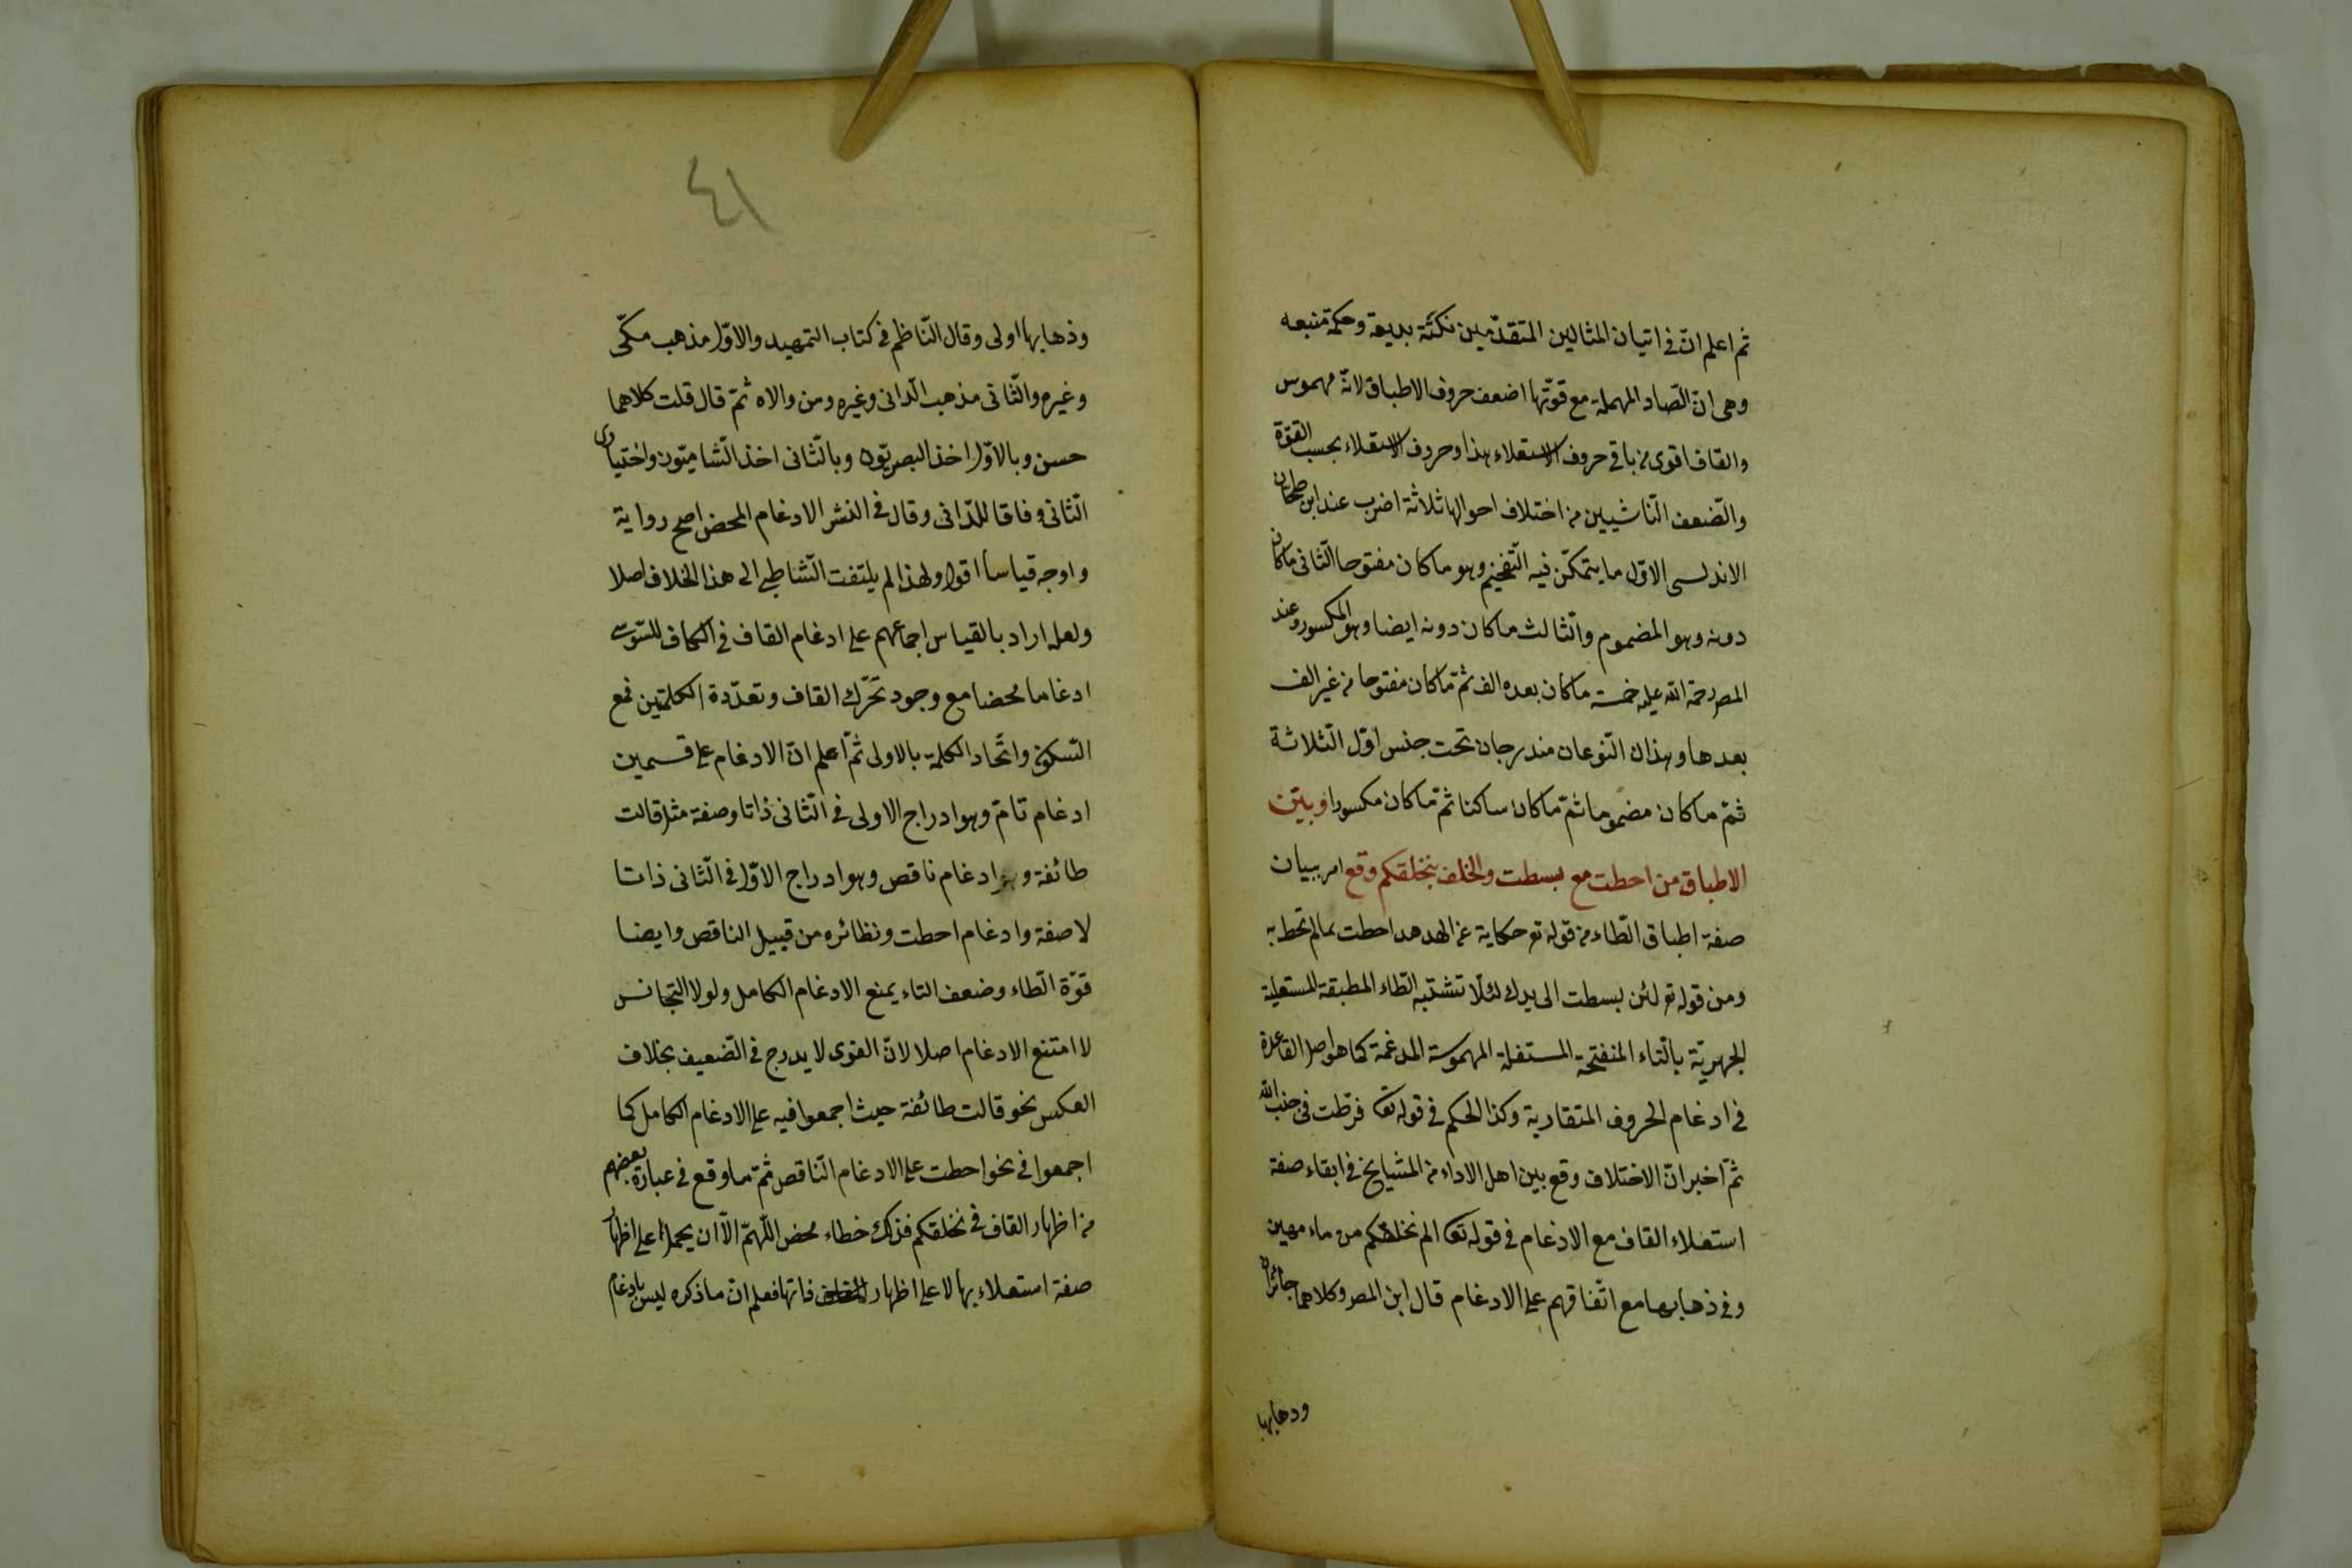 ثم اعلم انّ فى اتيان المثالين المتقدّمين نكتة بديعة وحكمة منبعه
وهى انّ الصّاد المهملة مع قوّتها اضعف حروف الاطباق لانّه مهموس
والقاف اقوى من باقى حروف الاستعلاء هذا وحروف الاستعلاء بحسب القوّة
والضّعف النّاشيين من اختلاف احوالها ثلاثة اضرب عند ابن طحان
الاندلسى الاوّل ما يتمكّن فيه التّفخيم وهو ما كان مفتوحا الثّانى ما كان
دونه وهو المضموم والثّالث ما كان دونه ايضا وهو المكسور وعند
المص رحمة الله عليه خمسة ما كان بعده الف ثمّ ما كان مفتوحا من غير الف
بعدها وهذان النّوعان مندرجان تحت جنس اوّل الثّلاثة
ثمّ ما كان مضموما ثمّ ما كان ساكنا ثمّ ما كان مكسورا وبيّن
الاطباق من احطت مع بسطت والخلف بنخلقكم وقع امر ببيان
صفة اطباق الطّاء من قوله تع حكاية عن الهدهد احطت بما لم تحط به
ومن قوله تع لئن بسطت الى يدك لئلّا تشتبه الطّاء المطبقة المستعلية
الجهريّة بالتّاء المنفتحة المستفلة المهموسة المدغمة كما هو اصل القاعدة
فى ادغام الحروف المتقاربة وكذا الحكم فى قوله تعا فرّطت فى جنب الله
ثمّ اخبر انّ الاختلاف وقع بين اهل الاداء من المشيايخ فى ابقاء صفة
استعلاء القاف مع الادغام فى قوله تعا الم نخلقكم من ماء مهين
وفى ذهابها مع اتّفاقهم على الادغام قال ابن المص وكلاهما جائزان
وذهابها
٤١
وذهابها اولى وقال النّاظم فى كتاب التمهيد والاوّل مذهب مكّى
وغيره والثّانى مذهب الدّانى وغيره ومن والاه ثمّ قال قلت كلاهما
حسن وبالاوّل اخذ البصريّون وبالثّانى اخذ الشّاميّون واختيارى
الثّانى وفاقا للدّانى وقال فى النشر الادغام المحض اصح رواية
واوجه قياسا اقول ولهذا لم يلتفت الشّاطبى الى هذا الخلاف اصلا
ولعله اراد بالقياس اجماعهم على ادغام القاف فى الكاف للسّوسى
ادغاما محضا مع وجود تحرّك القاف وتعدّدة الكلمتين فمع
السّكون واتّحاد الكلمة بالاولى ثمّ اعلم انّ الادغام على قسمين
ادغام تامّ وهو ادراج الاولى فى الثّانى ذاتا وصفة مثل قالت
طائفة و ادغام ناقص وهو ادراج الاوّل فى الثّانى ذاتا
لا صفة وادغام احطت ونظائره من قبيل الناقص وايضا
قوّة الطّاء وضعف التاء يمنع الادغام الكامل ولولا التجانس
لا امتنع الادغام اصلا لانّ القوى لا يدرج فى الضّعيف بخلاف
العكس نحو قالت طائفة حيث اجمعوا فيه على الادغام الكامل كما
اجمعوا فى نحو احطت على الادغام النّاقص ثمّ ما وقع فى عبارة بعضهم
من اظهار القاف فى نخلقكم فذلك خطاء محض اللّهمّ الّا ان يحمل على اظهار
صفة استعلاء بها لا على اظهار ذاتها فعلم انّ ما ذكره ليس بادغام